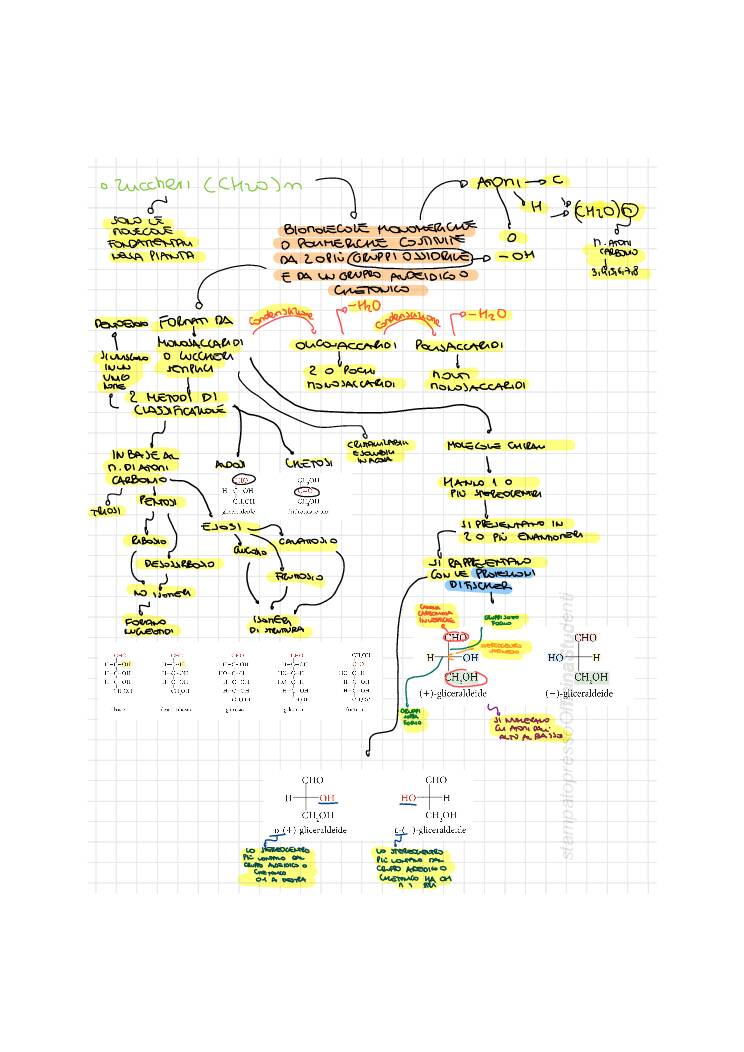 Zuccheri (CH2O)n
SOLO LE
MOLECOLE
FONDAMENTALI
NELLA PIANTA
BIOMOLECOLE MONOMERICHE
O POLIMERICHE COSTITUITE
DA 2 O PIÙ GRUPPI OSSIDRILE
E DA UN GRUPPO ALDEIDICO O
CHETONICO
ATOMI
C
H
O
- OH
(CH2O)n
N. ATOMI
CARBONIO
3,4,5,6,7,8
FORMATI DA
MONOSACCARIDI
O ZUCCHERI
SEMPLICI
Condensazione
-H2O
OLIGOSACCARIDI
2 O POCHI
MONOSACCARIDI
Condensazione
-H2O
POLISACCARIDI
MOLTI
MONOSACCARIDI
2 METODI DI
CLASSIFICAZIONE
IN BASE AL
N. DI ATOMI
CARBONIO
TRIOSI
PENTOSI
RIBOSIO
DESOSSIRIBOSIO
NO ISOMERI
FORMANO
NUCLEOTIDI
ESOSI
GLUCOSIO
GALATTOSIO
FRUTTOSIO
ISOMERI
DI STRUTTURA
ALDOSI
CHO
H-C-OH
CH2OH
gliceraldeide
CHETOSI
CH2OH
C=O
CH2OH
CRISTALLIZZABILI
E SOLUBILI
IN ACQUA
MOLECOLE CHIRALI
HANNO 1 O
PIÙ STEREOCENTRI
SI PRESENTANO IN
2 O PIÙ ENANTIOMERI
SI RAPPRESENTANO
CON LE PROIEZIONI
DI FISCHER
CATENA
CARBONIOSA
IN VERTICALE
GRUPPI SOTTO
FOGLIO
CHO
H OH
CH2OH
(+)-gliceraldeide
GRUPPI
SOPRA
FOGLIO
CHO
HO H
CH2OH
(−)-gliceraldeide
SI NUMERANO
GLI ATOMI DALL'
ALTO AL BASSO
CHO
H OH
CH2OH
D-(+)-gliceraldeide
LO STEREOCENTRO
PIÙ LONTANO DAL
GRUPPO ALDEIDICO O
CHETONICO
OH A DESTRA
CHO
HO H
CH2OH
L-(−)-gliceraldeide
LO STEREOCENTRO
PIÙ LONTANO DAL
GRUPPO ALDEIDICO O
CHETONICO HA OH
stampato presso Officina Studenti